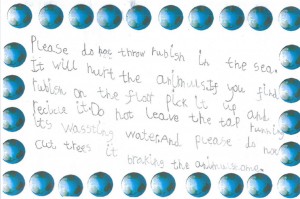 Please do not throw rubish in the sea.
It will hurt the animals.If you find
rubish on the floor pick it up and
recicle it.Do not leave the tap running
it's wassting water.And please do not
cut trees it braking the animals home.